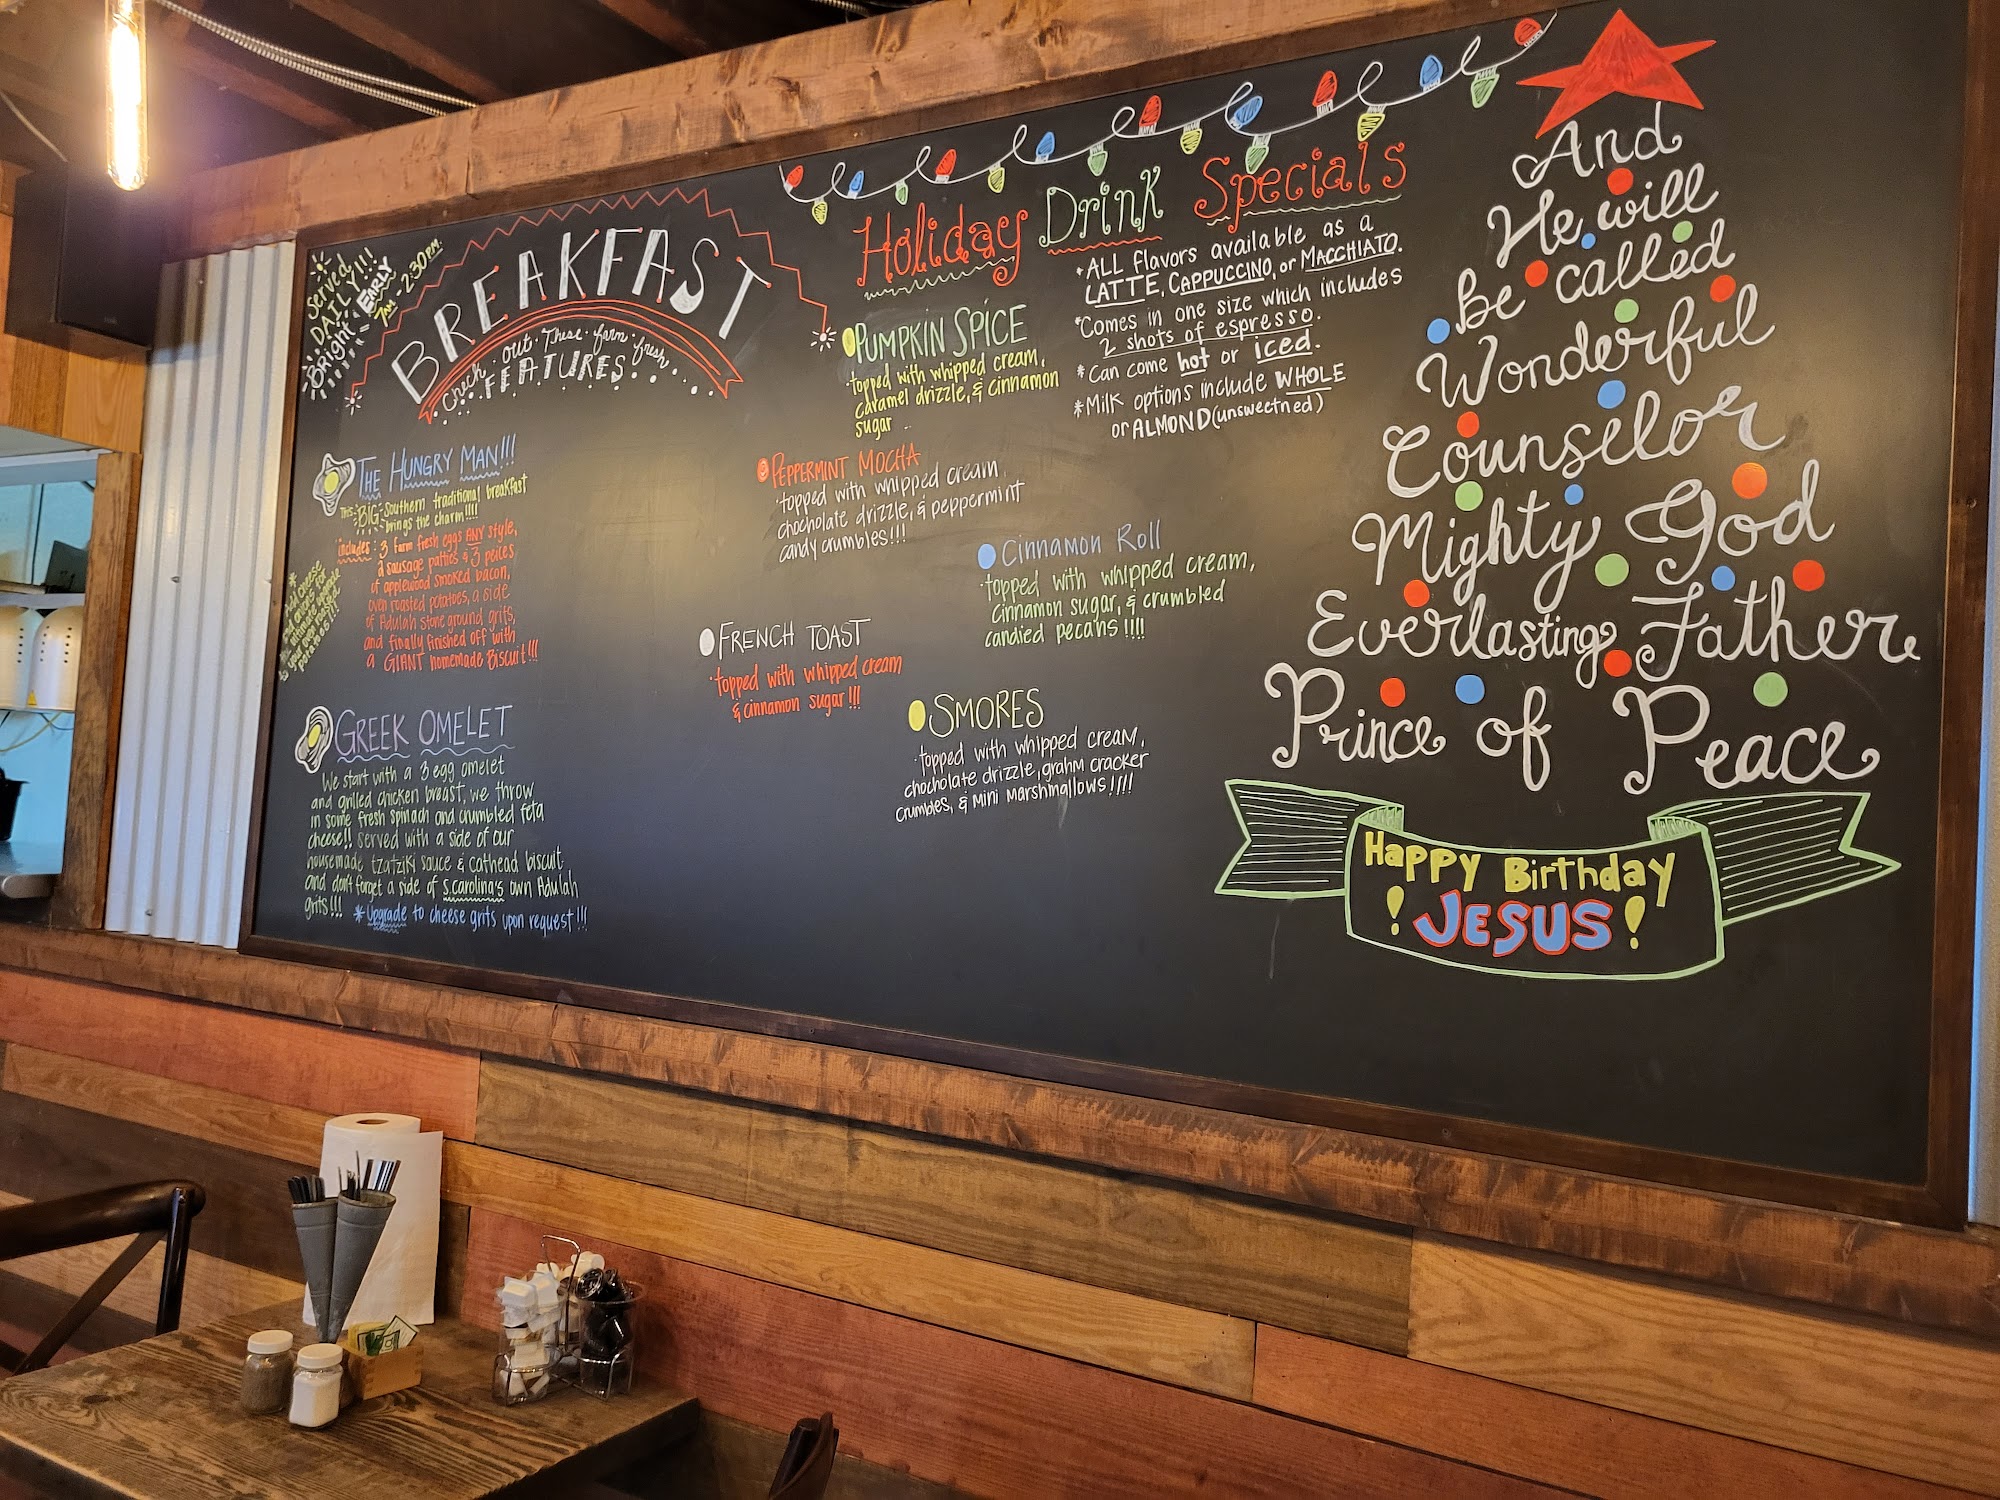 Served
DAILY!!!
Bright & EARLY
7am - 2:30pm
BREAKFAST
check out these farm fresh
FEATURES
THE HUNGRY MAN!!!
This BIG southern traditional breakfast
brings the charm!!!!
includes: 3 farm fresh eggs ANY style,
a sausage patties & 3 peices
of applewood smoked bacon,
oven roasted potatoes, a side
of Adulah stone ground grits,
and finally finished off with
a GIANT homemade Biscuit!!!
* Add cheese
and onions for
your oven roasted
potatoes!!!
GREEK OMELET
We start with a 3 egg omelet
and grilled chicken breast, we throw
in some fresh spinach and crumbled feta
cheese!! served with a side of our
housemade tzatziki sauce & cathead biscuit
and don't forget a side of S.carolina's own Adulah
grits!!!
* Upgrade to cheese grits upon request!!!
Holiday Drink Specials
*ALL flavors available as a
LATTE, CAPPUCCINO, or MACCHIATO.
*Comes in one size which includes
2 shots of espresso.
*Can come hot or iced.
*Milk options include WHOLE
or ALMOND (unsweetned)
PUMPKIN SPICE
·topped with whipped cream,
caramel drizzle, & cinnamon
sugar
PEPPERMINT MOCHA
·topped with whipped cream,
chocholate drizzle, & peppermint
candy crumbles!!!
Cinnamon Roll
·topped with whipped cream,
cinnamon sugar, & crumbled
candied pecans!!!!
FRENCH TOAST
·topped with whipped cream
& cinnamon sugar!!!
SMORES
·topped with whipped cream,
chocholate drizzle, grahm cracker
crumbles, & mini marshmallows!!!!
And
He will
Be called
Wonderful
Counselor
Mighty God
Everlasting Father
Prince of Peace
Happy Birthday
! JESUS !